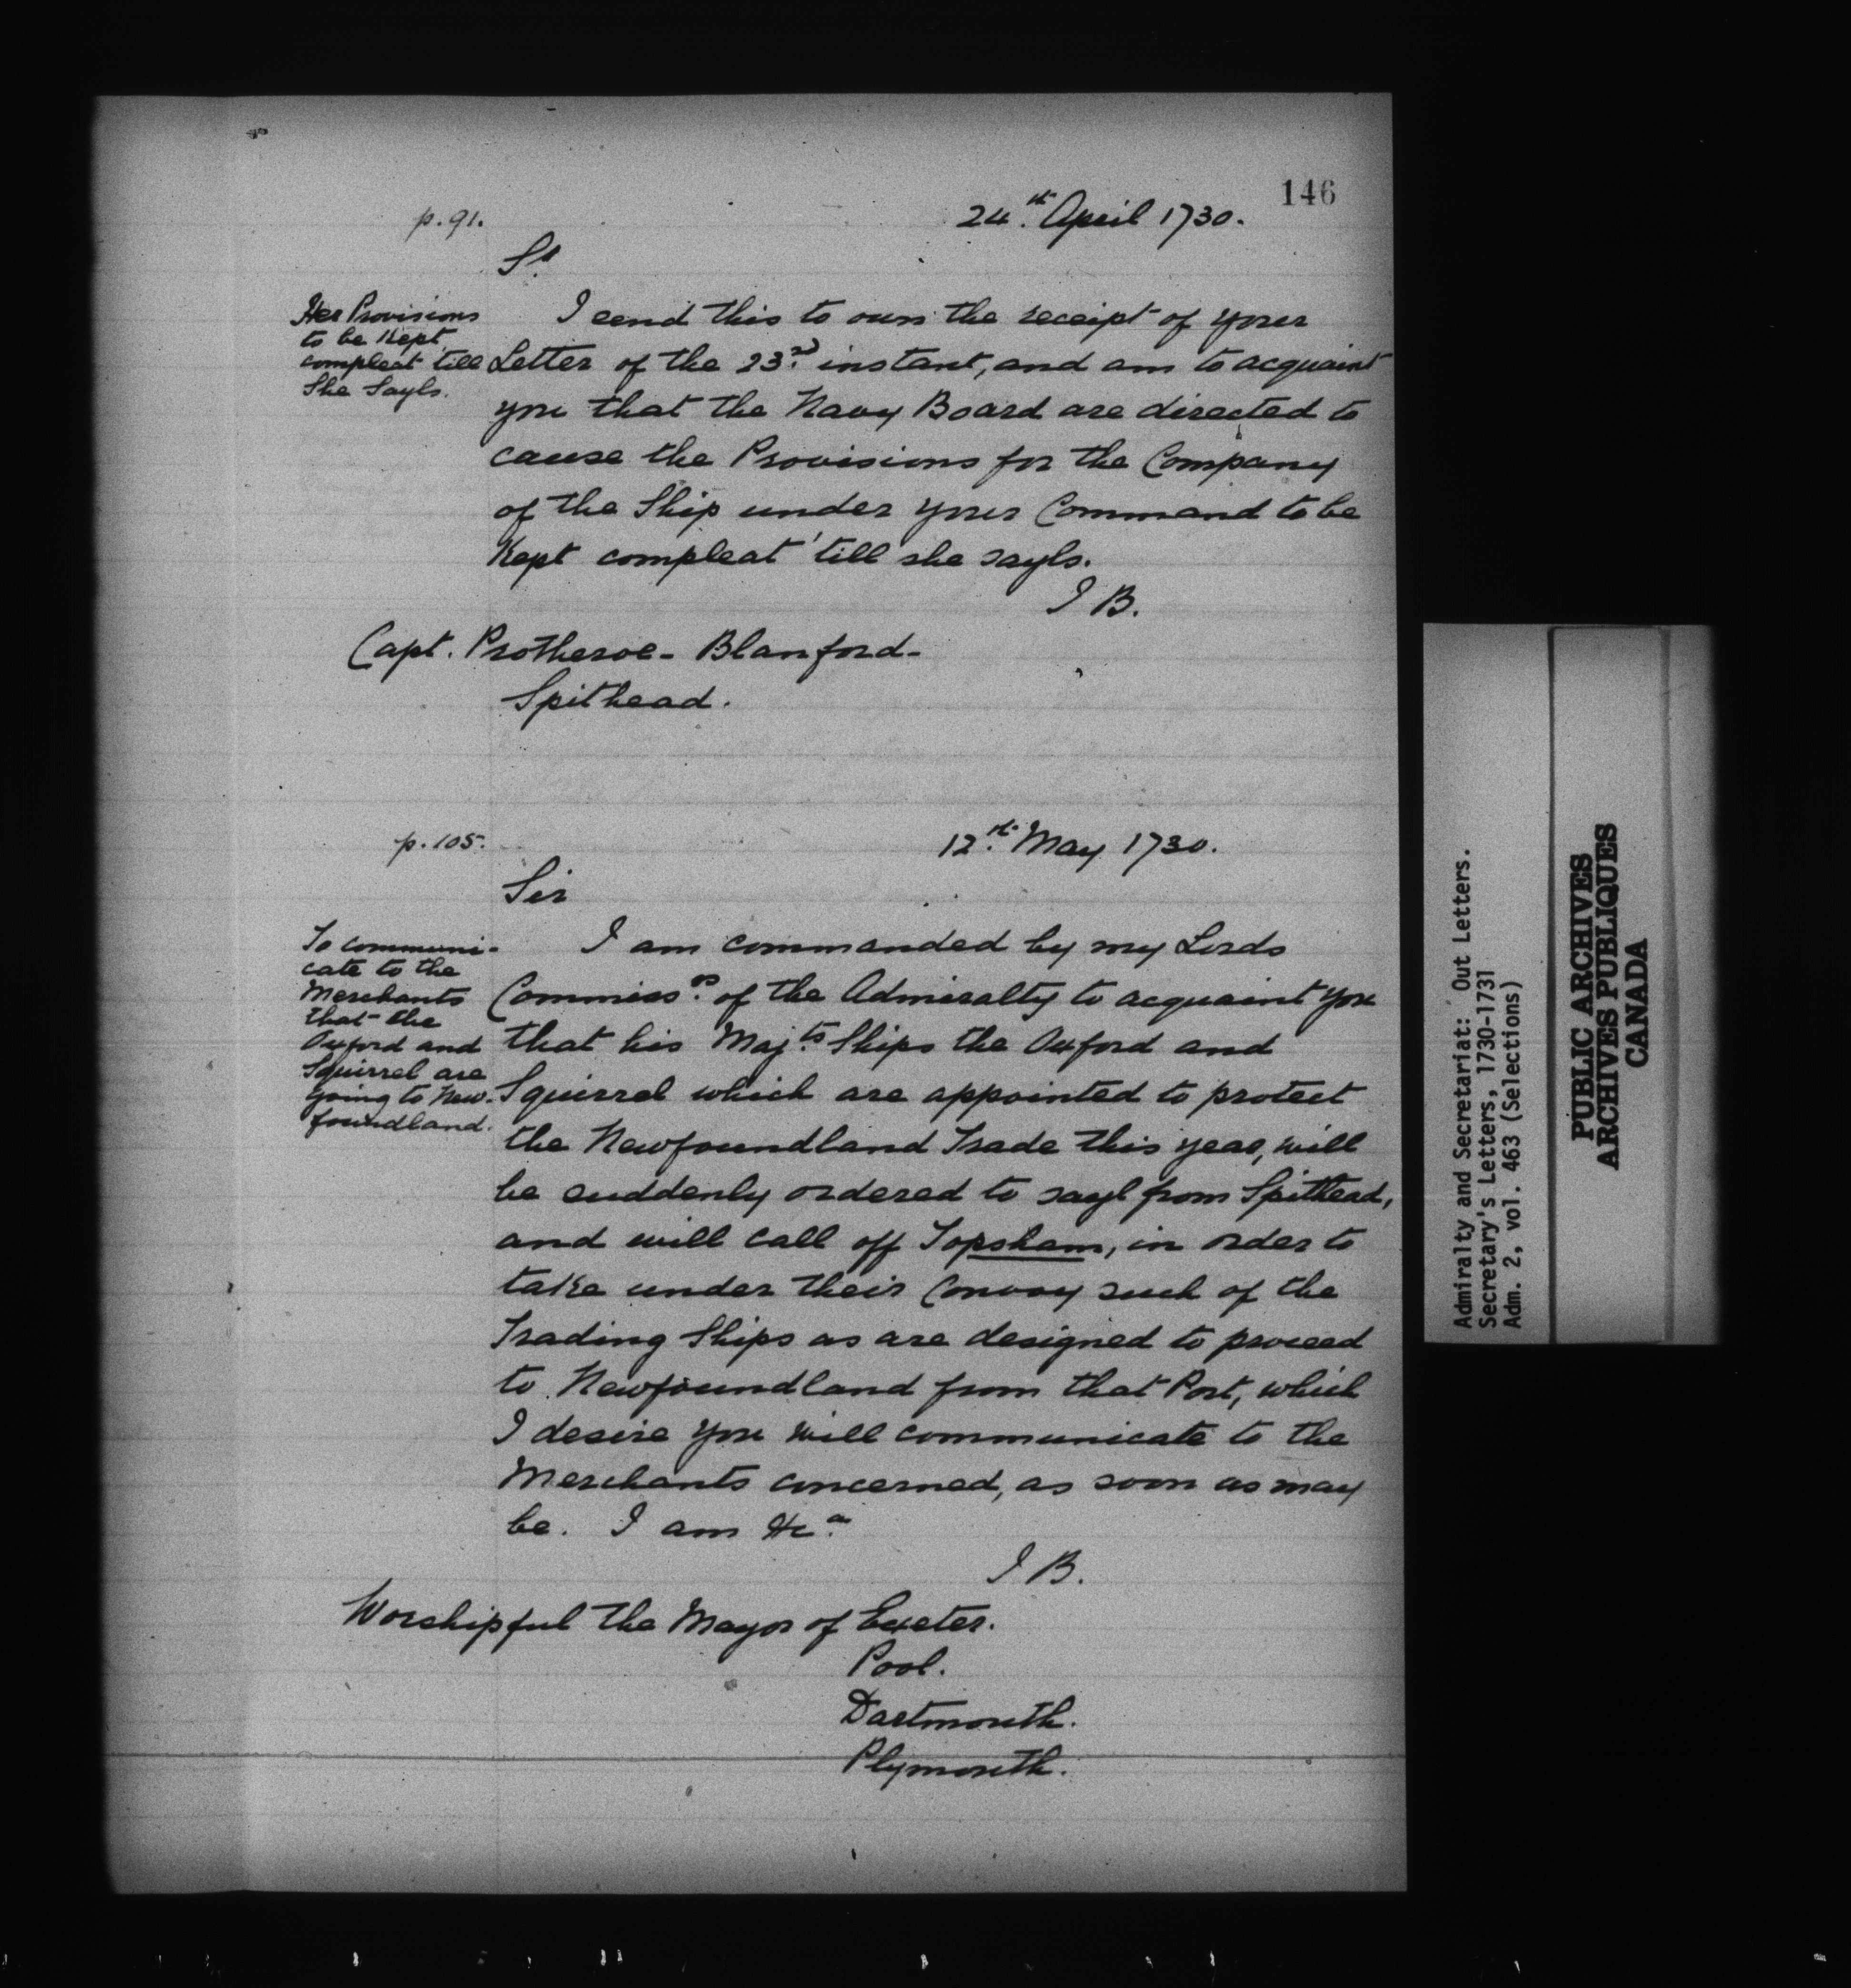 146
p. 91.
24.th April 1730.
Sr.
Her Provisions
to be Kept
compleat till
She Sayls.
I send this to own the receipt of your
Letter of the 23.d instant, and am to acquaint
you that the Navy Board are directed to
cause the Provisions for the Company
of the Ship under your Command to be
Kept compleat 'till she sayls.
J B.
Capt. Protheroe - Blanford -
Spithead.
p. 105.
12.th May 1730.
Sir
To communi-
cate to the
Merchants
that the
Oxford and
Squirrel are
going to New-
foundland.
I am commanded by my Lords
Commiss.rs of the Admiralty to acquaint you
that his Maj.ts Ships the Oxford and
Squirrel which are appointed to protect
the Newfoundland Trade this year, will
be suddenly ordered to sayl from Spithead,
and will call off Topsham, in order to
take under their Convoy such of the
Trading Ships as are designed to proceed
to Newfoundland from that Port, which
I desire you will communicate to the
Merchants concerned, as soon as may
be. I am &c.a
J B.
Worshipful the Mayor of Exeter.
Pool.
Dartmouth.
Plymouth.
Admiralty and Secretariat: Out Letters.
Secretary's Letters, 1730-1731
Adm. 2, vol. 463 (Selections)
PUBLIC ARCHIVES
ARCHIVES PUBLIQUES
CANADA